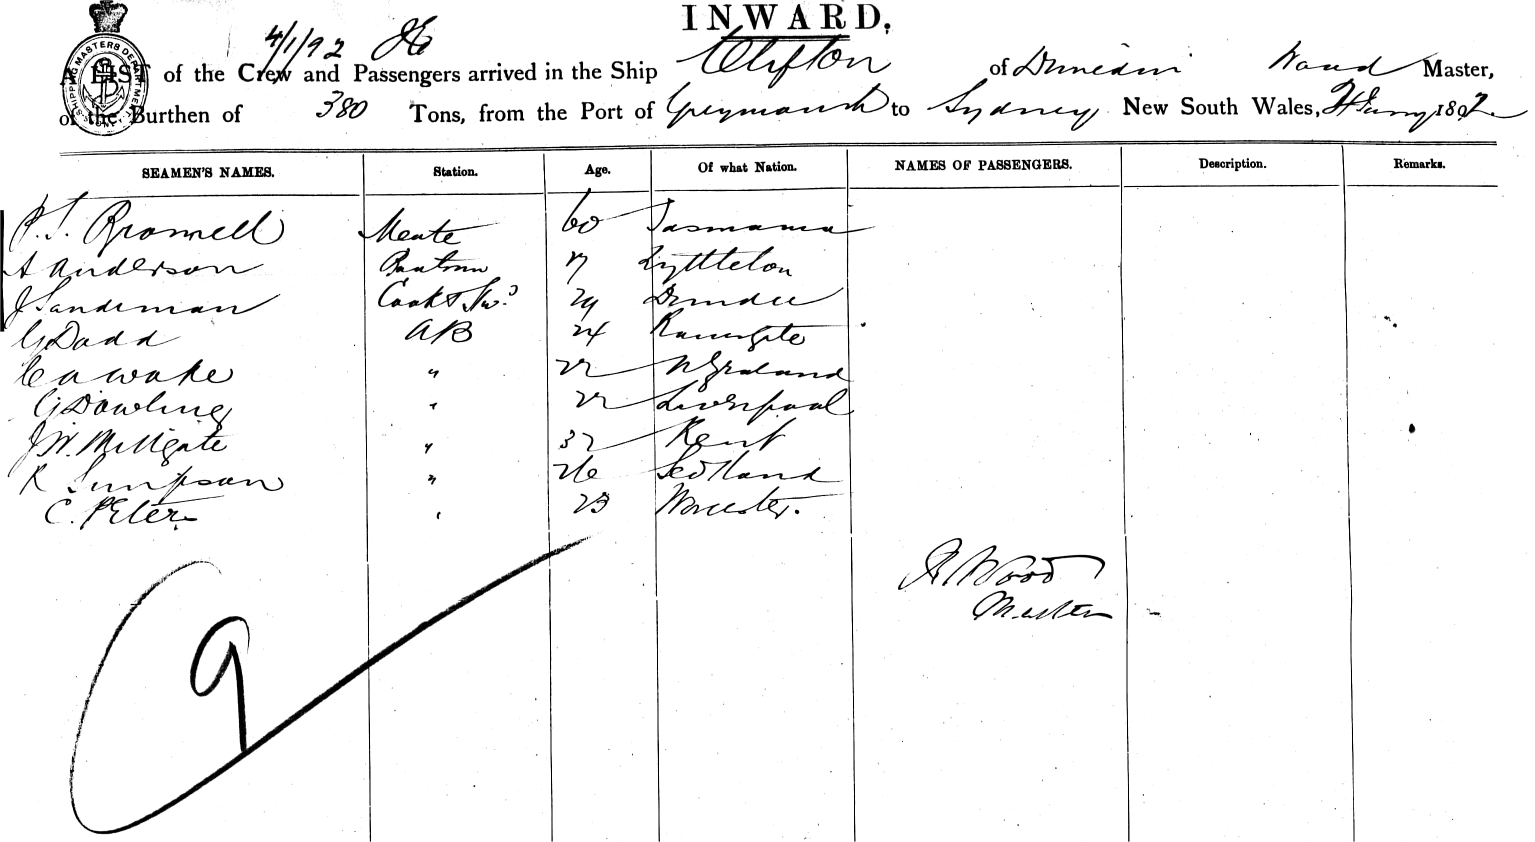 INWARD.
4/1/92
A LIST of the Crew and Passengers arrived in the Ship Clifton of Dunedin Wood Master,
of the Burthen of 380 Tons, from the Port of Greymouth to Sydney New South Wales, 1892.
SHIPPING MASTERS DEPARTMENT
SEAMEN'S NAMES. Station. Age. Of what Nation. NAMES OF PASSENGERS. Description. Remarks.
P. T. Bromell Mate 60 Tasmania
A Anderson 17 Lyttleton
J Sandeman Cook & Stwd 29 Dundee
G Dodd AB 24 Ramsgate
C A Wake " 22 N Zealand
G Dowling " 22 Liverpool
J W. Millgate " 32 Kent
R Simpson " 26 Scotland
C. Peters " 23 Worcester.
Wood
Master
9